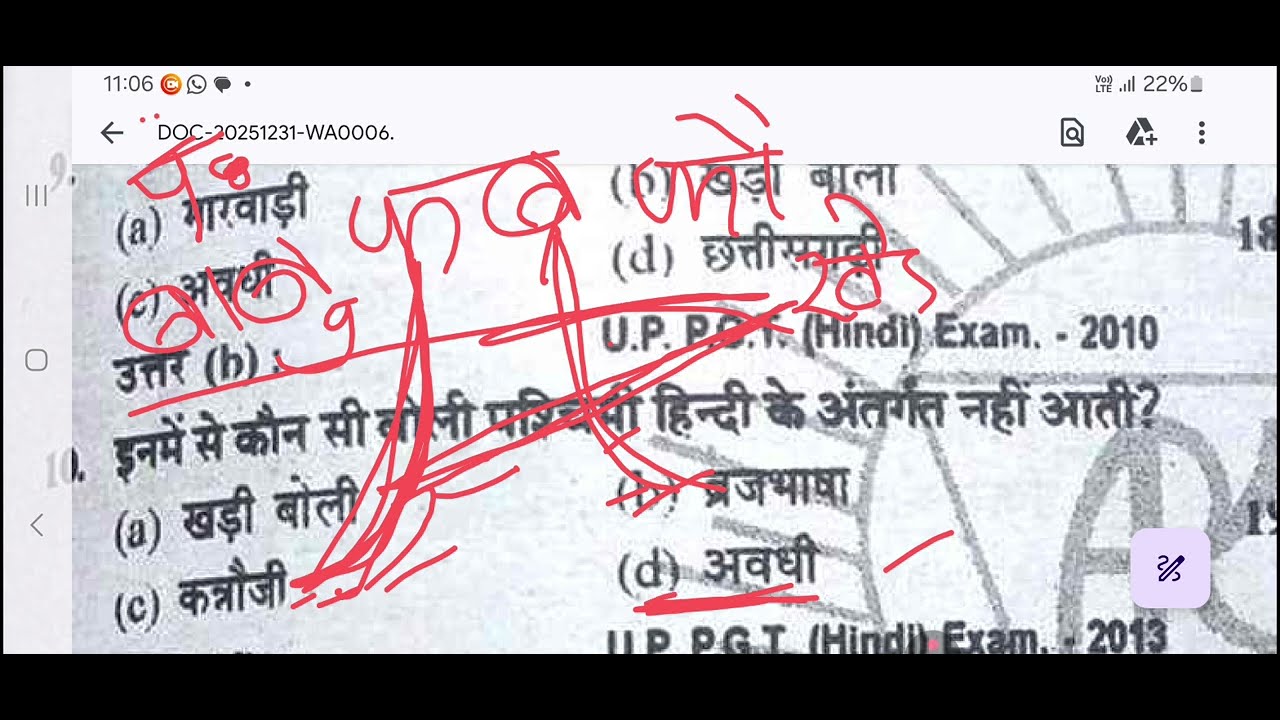 11:06
Vo)) LTE 22%
DOC-20251231-WA0006.
9.
(a) मारवाड़ी (b) खड़ी बोली
(c) अवधी (d) छत्तीसगढ़ी
18
उत्तर (b) : U.P. P.G.T. (Hindi) Exam. - 2010
10. इनमें से कौन सी बोली पश्चिमी हिन्दी के अंतर्गत नहीं आती?
(a) खड़ी बोली (b) ब्रजभाषा
19
(c) कन्नौजी (d) अवधी
U.P. P.G.T. (Hindi) Exam. - 2013